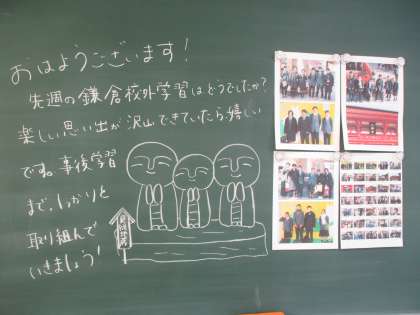 おはようございます!
先週の鎌倉校外学習はどうでしたか?
楽しい思い出が沢山できていたら、嬉しい
です。事後学習
まで、しっかりと
取り組んで
いきましょう!